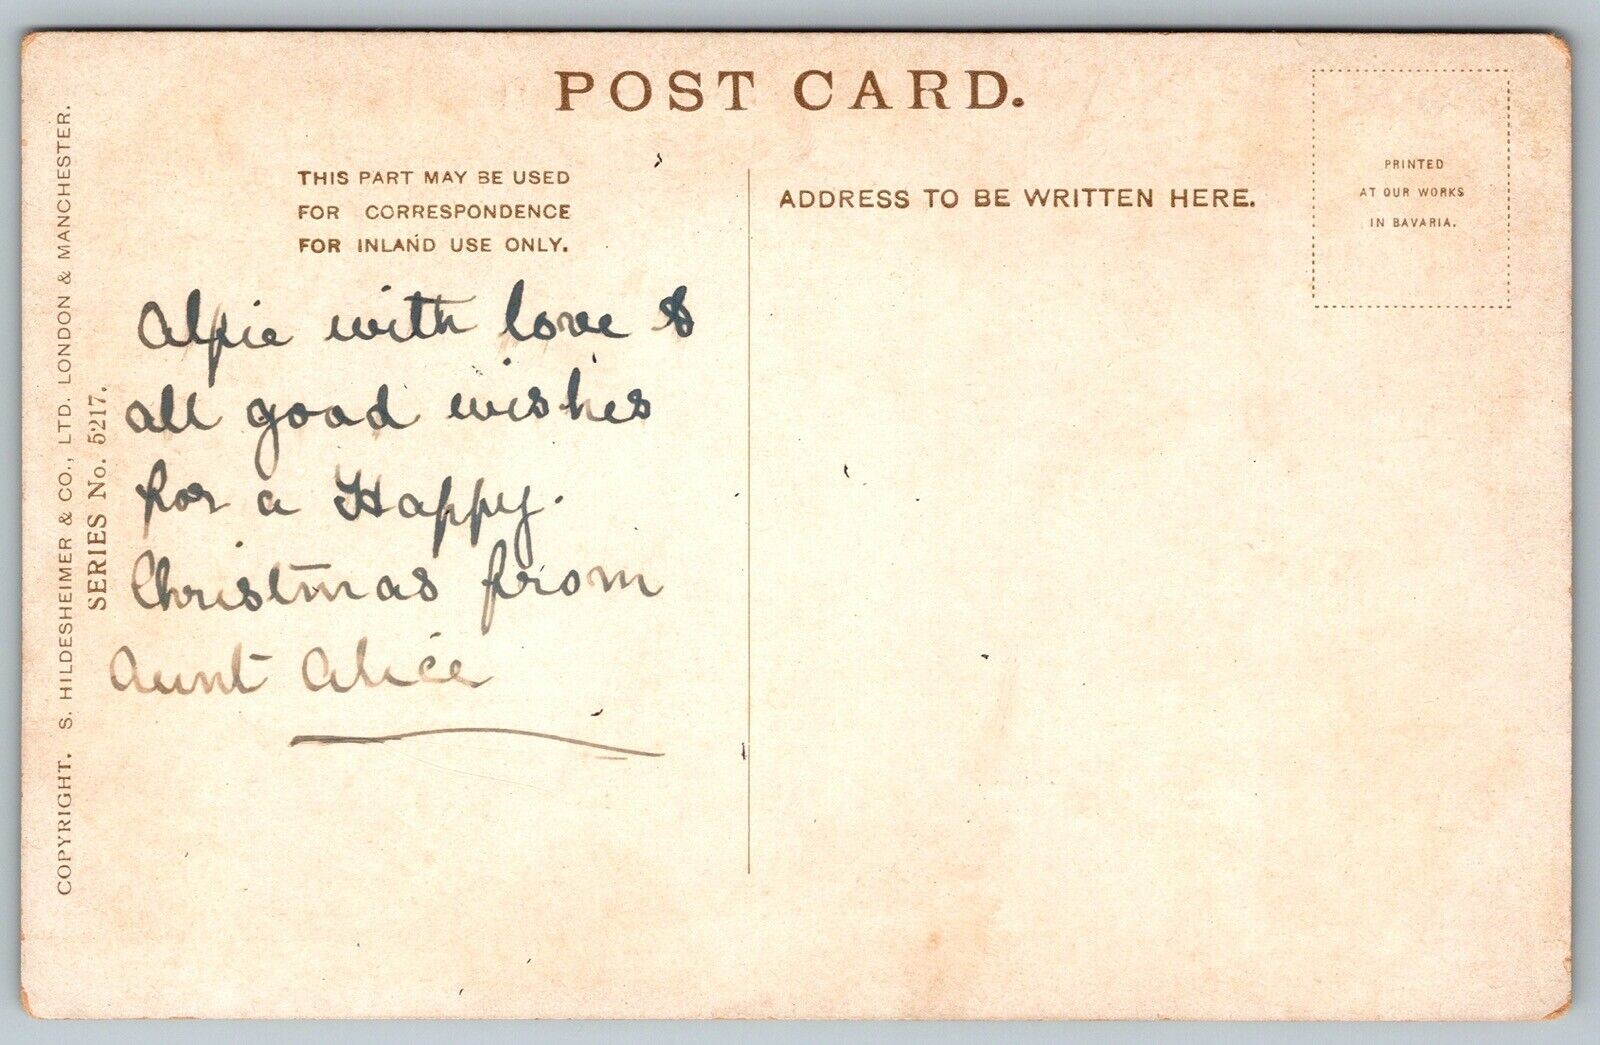 POST CARD.
THIS PART MAY BE USED
FOR CORRESPONDENCE
FOR INLAND USE ONLY.
ADDRESS TO BE WRITTEN HERE.
PRINTED
AT OUR WORKS
IN BAVARIA.
Alfie with love &
all good wishes
for a Happy.
Christmas from
Aunt Alice
COPYRIGHT. S. HILDESHEIMER & CO., LTD. LONDON & MANCHESTER.
SERIES No. 5217.